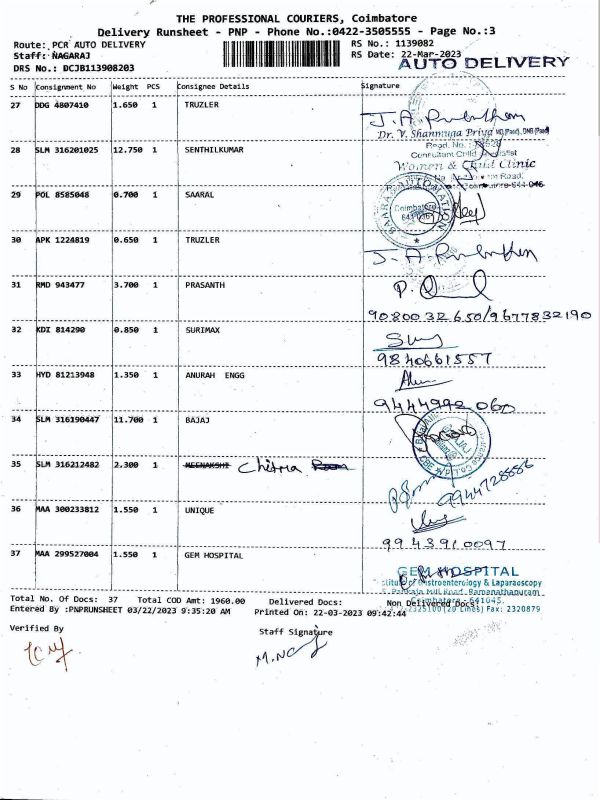 THE PROFESSIONAL COURIERS, Coimbatore
Delivery Runsheet - PNP - Phone No.:0422-3505555 - Page No.:3
Route: PCR AUTO DELIVERY RS No.: 1139082
Staff: NAGARAJ RS Date: 22-Mar-2023
DRS No.: DCJB113908203 AUTO DELIVERY
S No Consignment No Weight PCS Consignee Details Signature
27 DDG 4807410 1.650 1 TRUZLER
Dr. V. Shanmuga Priya
28 SLM 316201025 12.750 1 SENTHILKUMAR
Women & Child Clinic
29 POL 8585048 0.700 1 SAARAL
Coimbatore
30 APK 1224819 0.650 1 TRUZLER
31 RMD 943477 3.700 1 PRASANTH
9080032650/9677832190
32 KDI 814290 0.850 1 SURIMAX
9840661557
33 HYD 81213948 1.350 1 ANURAH ENGG
9444992060
34 SLM 316190447 11.700 1 BAJAJ
35 SLM 316212482 2.300 1 MEENAKSHI Chitria
9944728886
36 MAA 300233812 1.550 1 UNIQUE
9943910097
37 MAA 299527004 1.550 1 GEM HOSPITAL
GEM HOSPITAL
Gastroenterology & Laparaoscopy
Ramanathapuram
Coimbatore - 641045
Fax: 2320879
Total No. Of Docs: 37 Total COD Amt: 1960.00 Delivered Docs: Non Delivered Docs:
Entered By :PNPRUNSHEET 03/22/2023 9:35:20 AM Printed On: 22-03-2023 09:42:44
Verified By Staff Signature